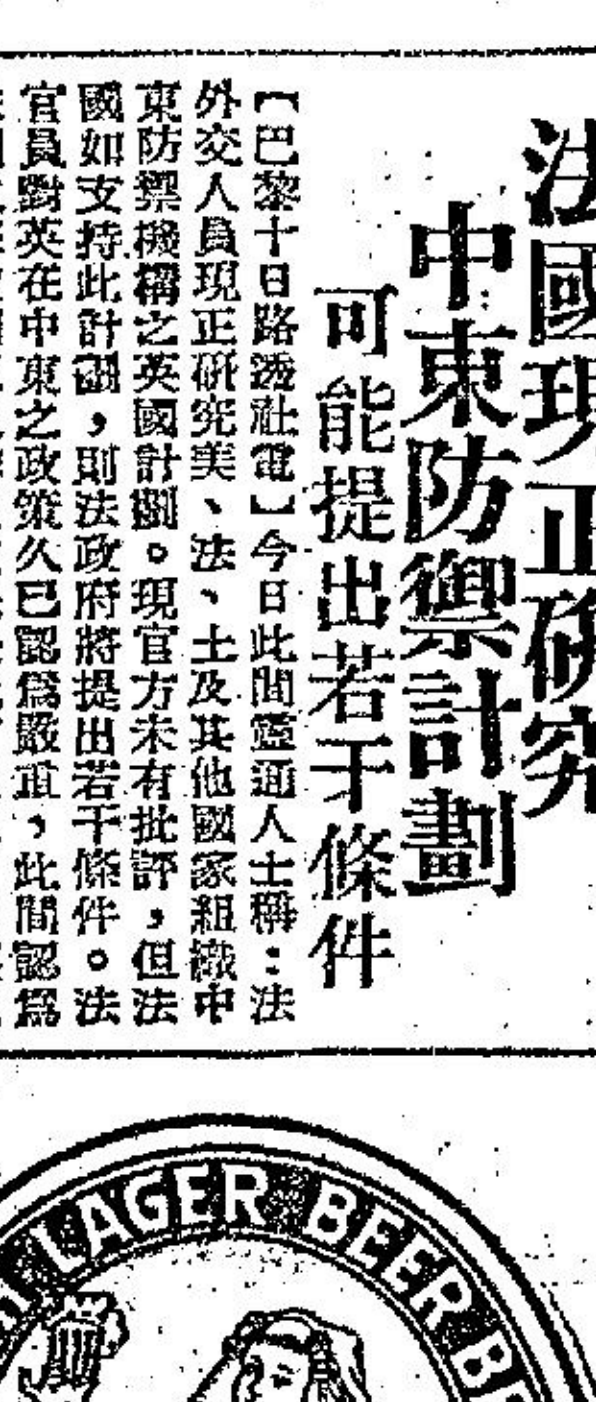 法國現正研究
中東防禦計劃
可能提出若干條件
【巴黎十日路透社電】今日此間靈通人士稱：法
外交人員現正研究美、法、土及其他國家組織中
東防禦機構之英國計劃。現官方未有批評，但法
國如支持此計劃，則法政府將提出若干條件。法
官員對英在中東之政策久已認爲嚴重，此間認爲
LAGER BEER